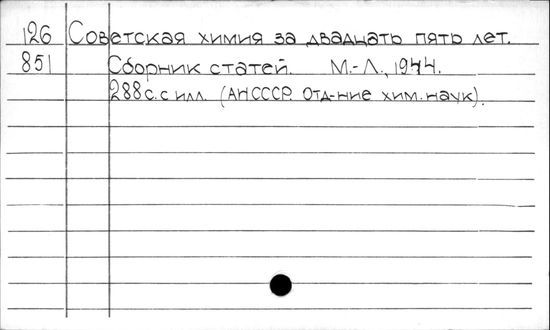 126 Советская химия за двадцать пять лет.
851 Сборник статей. М.-Л., 1944.
288 с. с илл. (АН СССР. Отд-ние хим. наук).